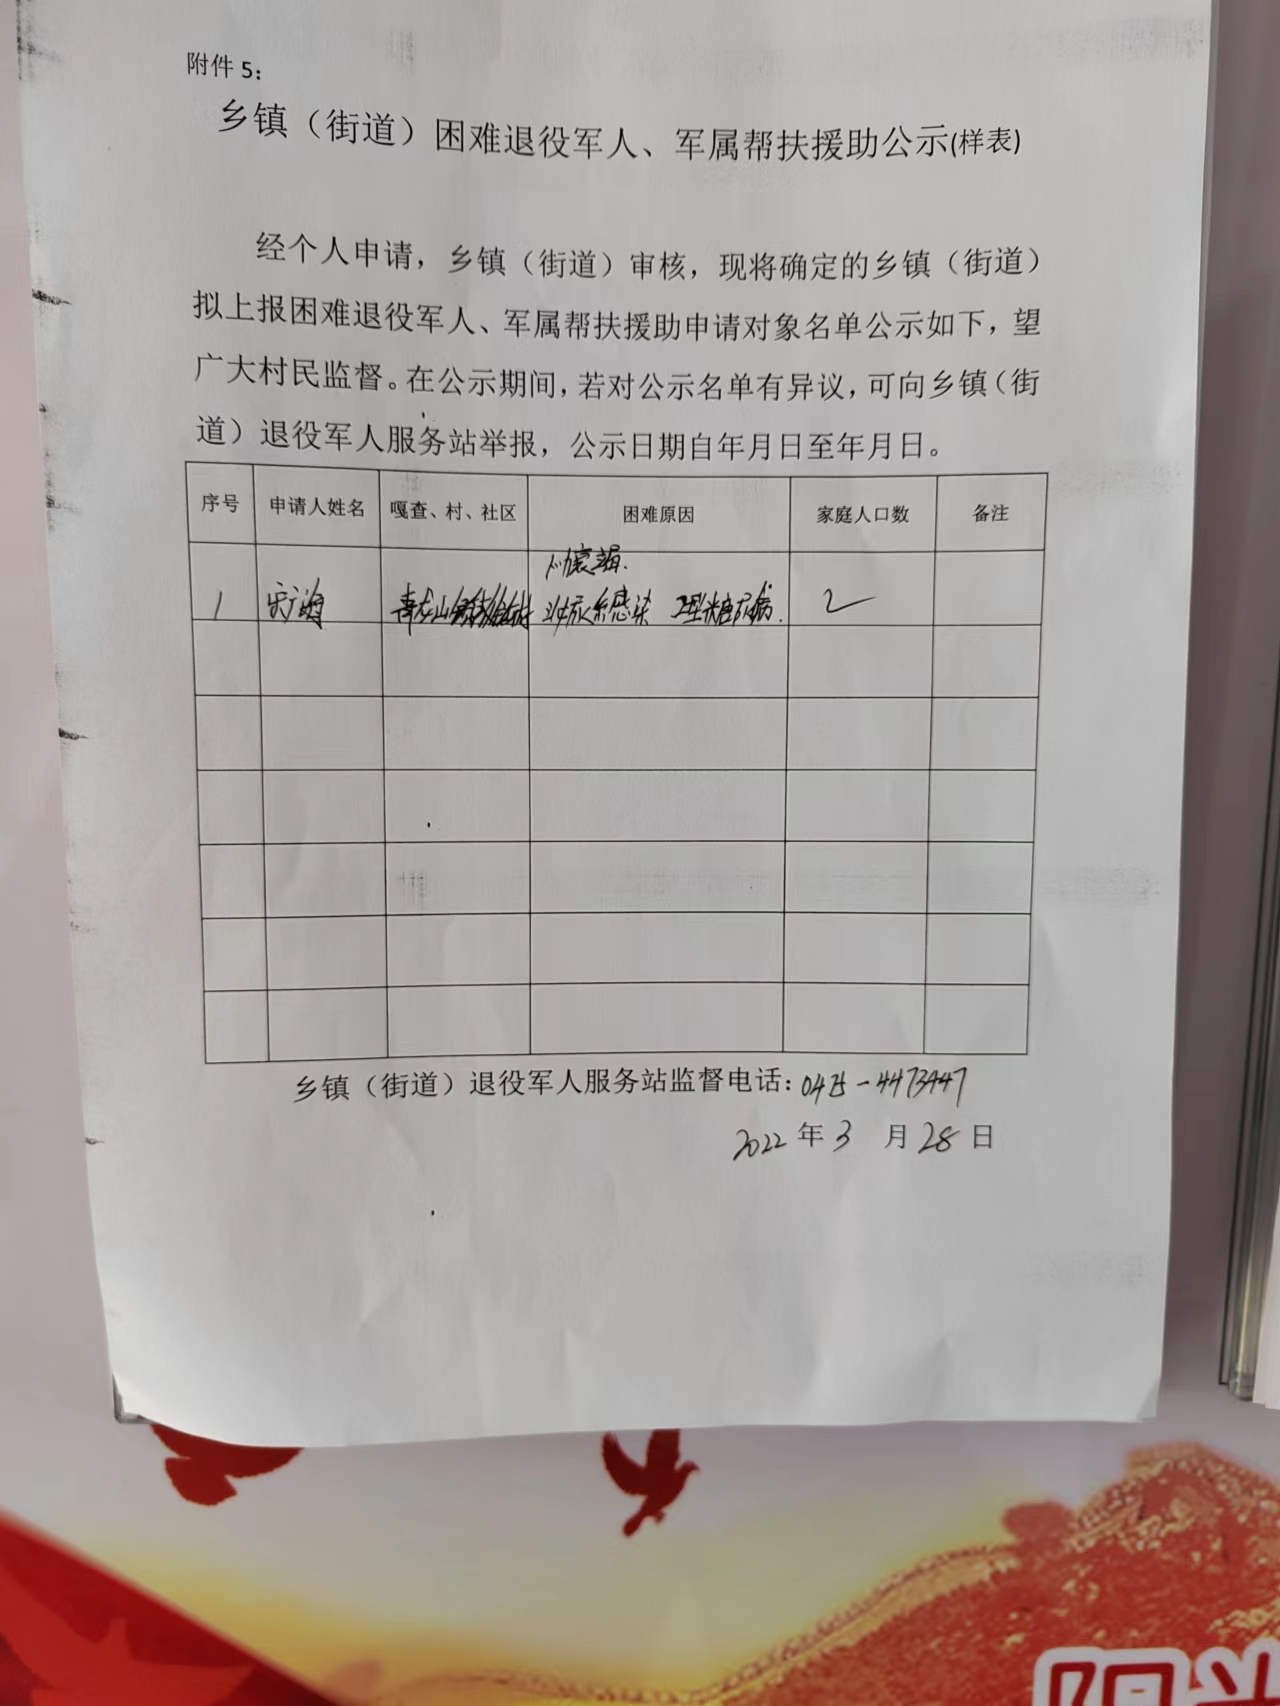 附件 5：
乡镇（街道）困难退役军人、军属帮扶援助公示(样表)
经个人申请，乡镇（街道）审核，现将确定的乡镇（街道）
拟上报困难退役军人、军属帮扶援助申请对象名单公示如下，望
广大村民监督。在公示期间，若对公示名单有异议，可向乡镇（街
道）退役军人服务站举报，公示日期自年月日至年月日。
序号 申请人姓名 嘎查、村、社区 困难原因 家庭人口数 备注
心衰竭.
1 宋广海 青龙山 泌尿系感染 2型糖尿病. 2
乡镇（街道）退役军人服务站监督电话：0475-4473447
2022 年 3 月 28 日
阳光